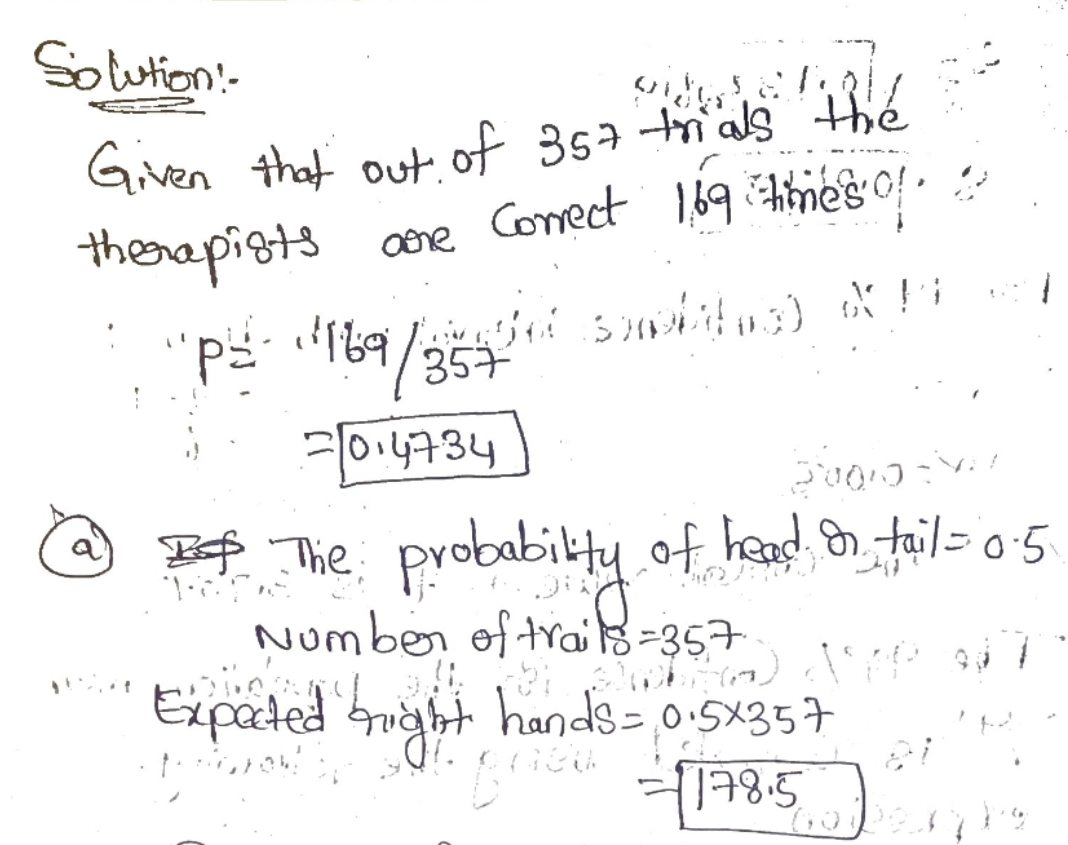 Solution:-
Given that out of 357 trials the
therapists are Correct 169 times.
p= 169/357
=0.4734
a The probability of head or tail=0.5
Number of trails=357
Expected right hands=0.5×357
=178.5